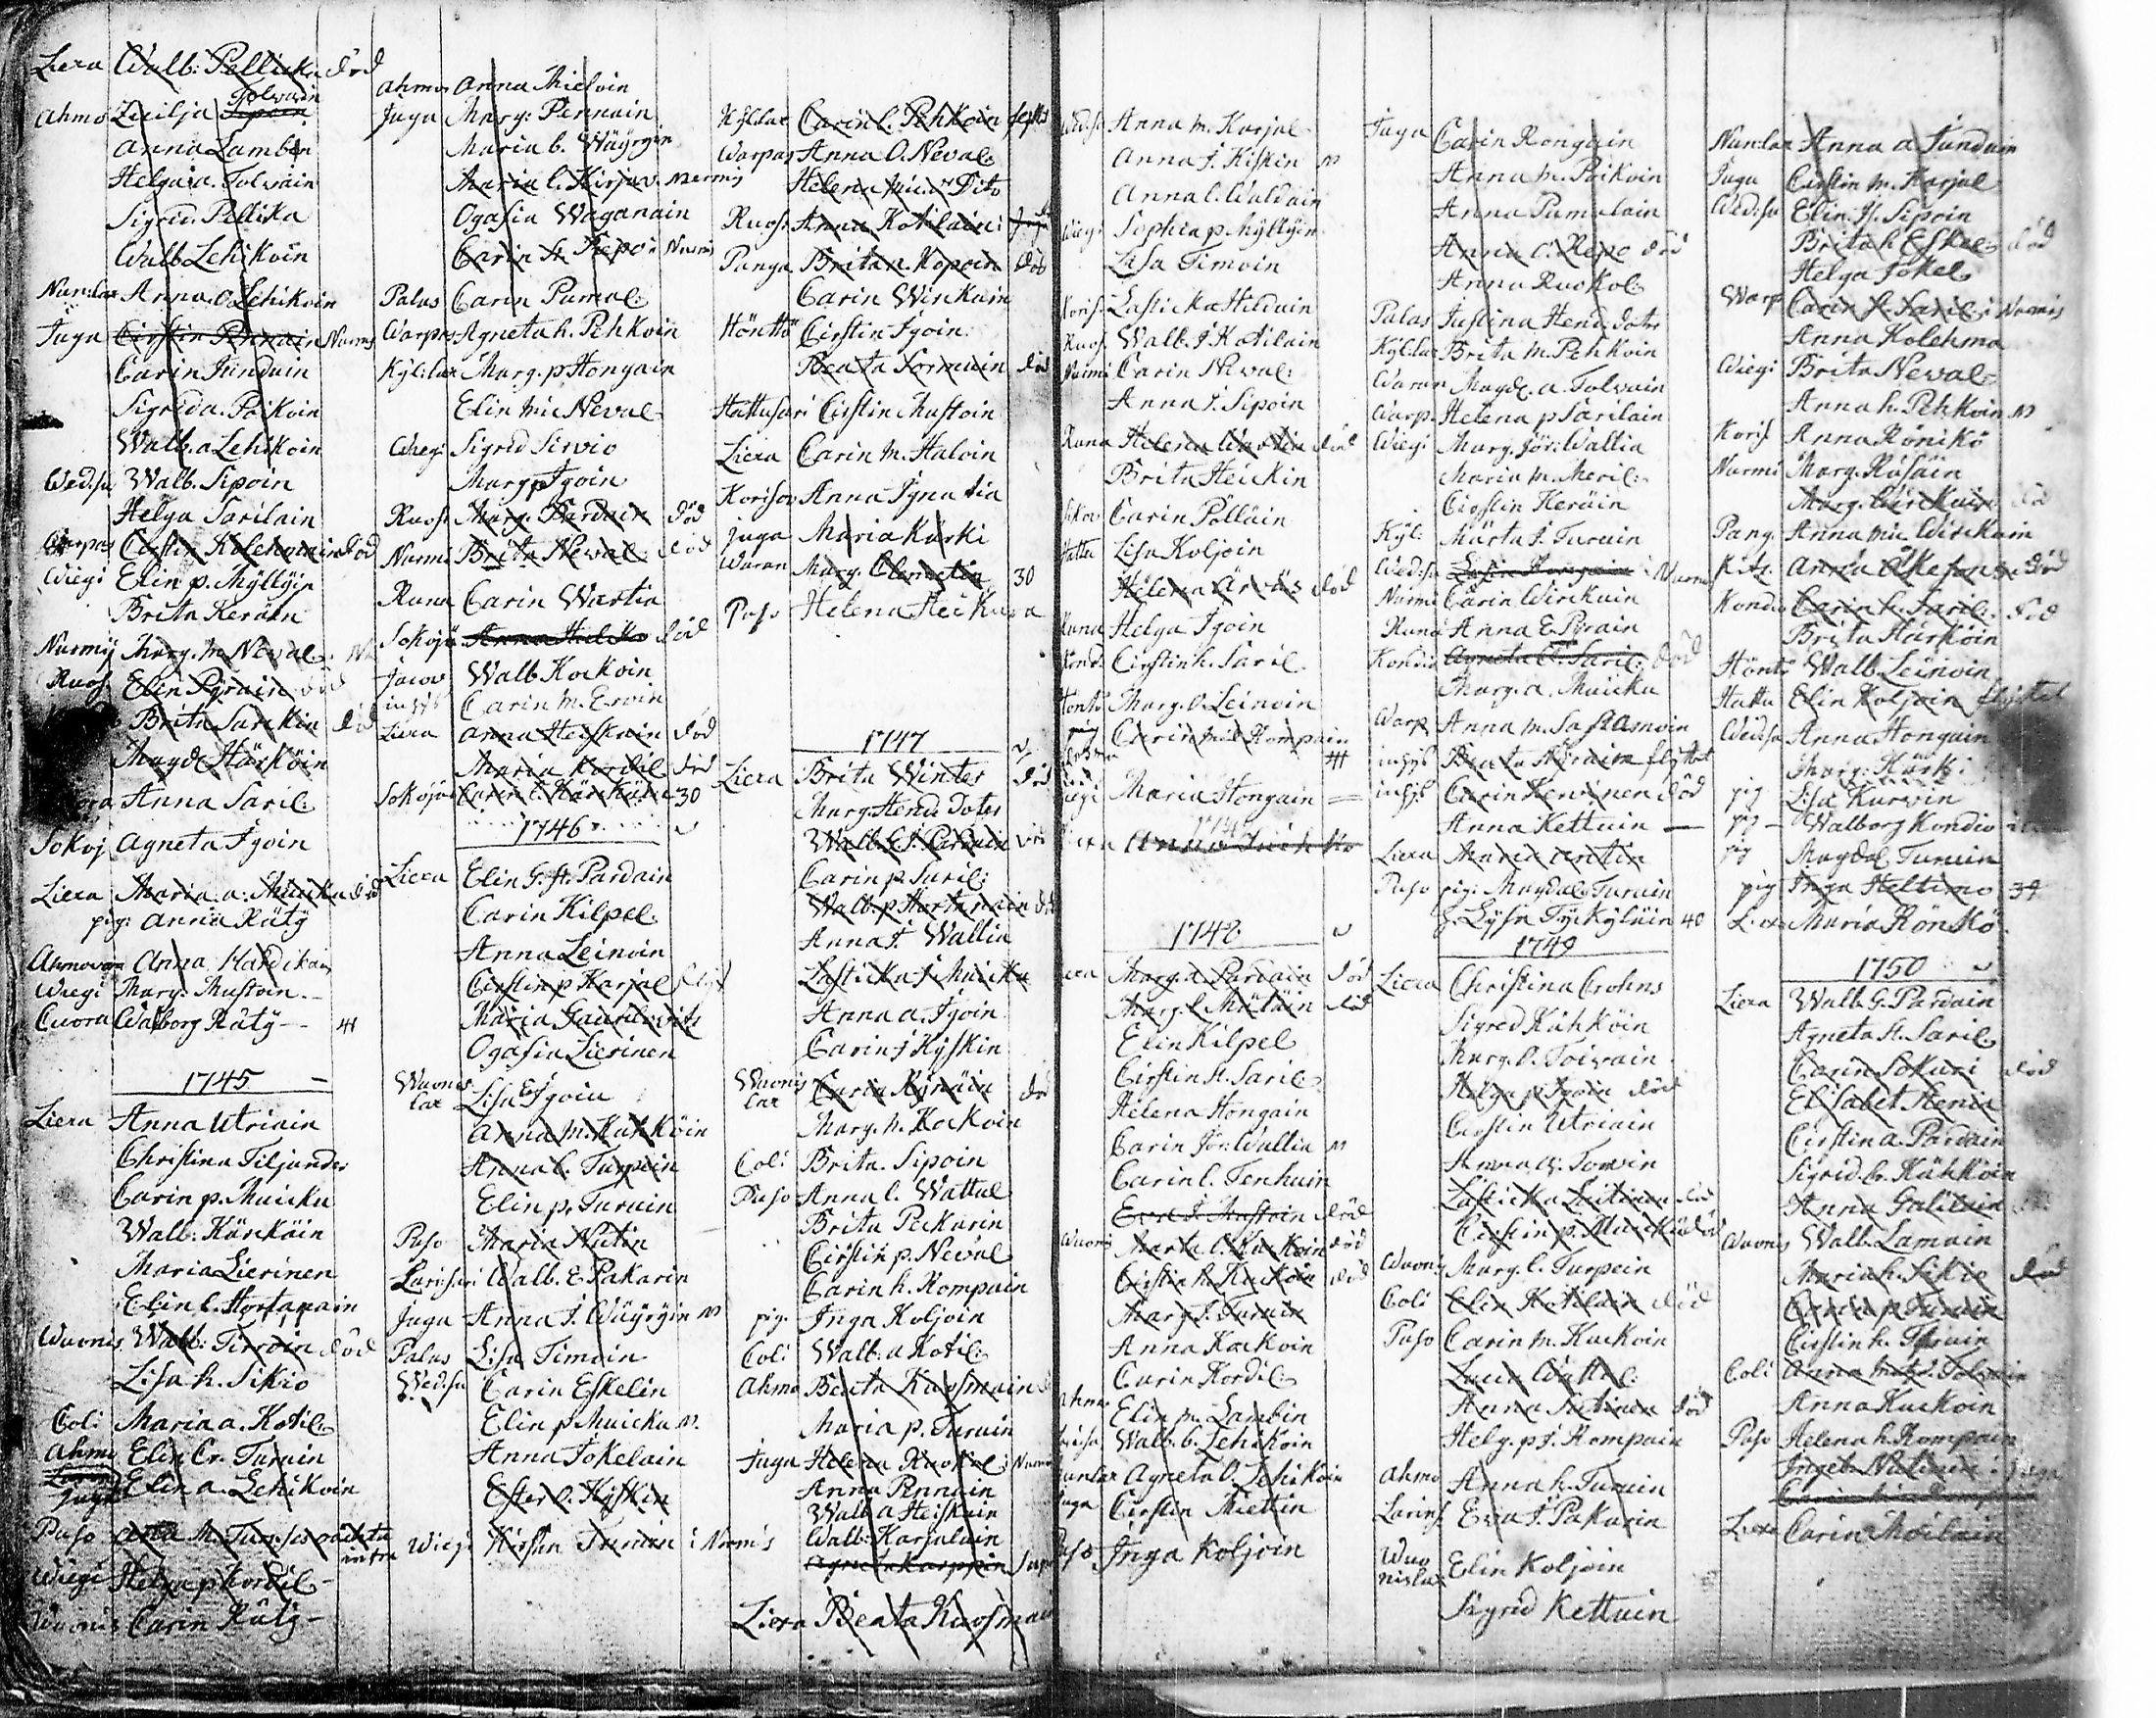 Liexa Walb. Pellicka död
Tolvain
Ahmo Zecilja Sipoin
Anna Lambin
Helga a. Tolvain
Sigrid Pellika
Walb Lehikoin
Nun:lax Anna O. Lehikoin
Juga Cirstin Pennain Nurmis
Carin Jundain
Sigrid a. Poikoin
Walb. a Lehikoin
Wedisu Walb. Sipoin
Helga Sarilain
Warpas Cirstin Kolehmain död
Wiegi Elin p. Myllyin
Brita Keräin
Nurmij Marg. m. Neval.
Ruos. Elin Pyrain död
Brita Sarckin död
Magd. Härköin
Anna Saril:
Sokoj Agneta Igoin
Liexa Maria a. Muicku död
pig: Anna Räty
Ahmovara Anna Hardikain
Wiegi Marg. Mustoin
Cuora Walborg Räty 41
1745
Liexa Anna Utriain
Christina Tiljander
Carin p. Muicku
Walb: Härcköin
Maria Lierinen
Elin l. Hortanain
Wuonis Walb: Tirroin död
Lisa h. Sikio
Coli Maria a. Kotil:
Ahmo Elin Er. Turuin
Juga Elin a. Lehikoin
Puso
Wiegi Helga p Kordil
Wuonis Carin Räty
Ahmo Anna Mieloin
Juga Marg: Pennain
Maria b. Wäyryin
Maria l. Kirjav. Nurmis
Ogafia Waganain
Carin H. Repo i Nurmis
Palas Carin Pumal:
Warpas Agneta h. Pehkoin
Kyl:lax Marg. p Hongain
Elin mic Neval
Wiegi Sigrid Sirvio
Marg p Igoin
Ruos. Marg. Pardain död
Nurmi Brita Neval: död
Runa Carin Wastia
Sokojä död
Walb Kockoin
inhys Carin m. Ervoin
Liexa Anna Heiskain död
Maria Kordil död
Sokojä Carin C. Härcköin 30
1746
Liexa Elin G. H. Pardain
Carin Kilpel:
Anna Leinoin
Cirstin p Karjal
Maria Gaurilovits
Ogafia Lierinen
Wuonis lax Lisa E Igoin
Anna m. Kähköin
Anna C. Turpein
Elin p. Turuin
Puso Maria Nutin
Walb. E Pakarin
Juga Anna J. Wäyryin
Palas Lisa Timoin
Wedisu Carin Eskelin
Elin p Muicku
Anna Jokelain
Ester O. Kyskin
Wiegi Kirstin Turunen i Nurmis
Kyl:lax Carin l. Pehkoin
Warpas Anna O. Neval:
Helena mic:r Dito
Ruos. Anna Kotilain: Juga
Panga Brita n. Kopoin död
Carin Wirckuin
Hönttö Cirstin Igoin
Beata Sormuin död
Hattusari Cirstin Mustoin
Liexa Carin m. Haloin
Korisov Anna Ignatia
Juga Maria Kurki
Waran Marg. Clemetin 30
Puso Helena Heikura
1747
Liexa Brita Winter död
Marg. Hend. doter
Walb. G. J. Pardain
Carin p. Saril:
Walb. p Hortanain död
Anna J. Wallia
Lasticka J. Muicku
Anna a. Igoin
Carin J Hyskin
Wuonis lax Carin Kynäin död
Marg. h. Kockoin
Coli Brita Sipoin
Puso Anna l. Wattul
Brita Peckarin
Cirstin p. Neval
Carin h. Rompain
pig. Inga Koljoin
Coli Walb. a Kotil:
Ahmo Beata Kuosmain
Maria p. Turuin
Juga Helena Ruokol: Nurmis
Anna Pennain
Walb a Heiskain
Walb: Karjalain
Liexa Beata Kuosmain
Wed:su Anna m. Karjal
Anna J. Kiskin
Anna l. Waldain
Wiegi Sophia p. Myllyin
Lisa Timoin
Koris. Lasticka Hilduin
Ruos. Walb. J Kotilain
Nurmi Carin Neval:
Anna J. Sipoin
Runa Helena Wastia död
Brita Heickin
Carin Pölläin
Hattu Lisa Koljoin
Helena Ärväs död
Runa Helga Igoin
Kond. Cirstin h. Saril.
Höntö Marg. O. Leinoin
pig Carin mic Rompain
Wiegi Maria Hongain
1748
Liexa Marg. a. Pardain död
Marg. l. Mätäin död
Elin Kilpel
Cirstin H. Saril:
Helena Hongain
Carin Jör: Wallia
Carin l. Tenhuin
Eva J. Mustoin död
Wuonis Marta C. Kuckoin död
Cirstin h. Kuckoin död
Marg. J. Turuin
Anna Kockoin
Carin Kordil:
Ahmo Elin m. Lambin
Walb. b. Lehikoin
Nunlax Agneta O. Lehikoin
Juga Cirstin Miettin
Puso Inga Koljoin
Juga Carin Rongain
Anna m. Poikoin
Anna Pumalain
Anna O. Repo död
Anna Ruokol:
Palas Justina Hend. doter
Kyl:lax Brita m. Pehkoin
Waran Magd. a. Tolvain
Warp. Helena p Sarilain
Wiegi Marg. Jör. Wallia
Maria m. Meril:
Cirstin Keräin
Kyl: Märta J. Turuin
Wedisu i Nurmi
Nurmi Carin Wirckuin
Runa Anna E. Pyrain
Kondi Agneta C. Saril: död
Marg. a. Muicku
Warp Anna m. Sastamoin
inhys flyttat
inhys död
Anna Kettuin
Liexa Maria Antin
Puso pig: Magdal: Turuin
Lysa Tyckyläin 40
1749
Liexa Christina Crohns
Sigred Kähköin
Marg. O. Toivain
Helga p Igoin död
Cirstin Utriain
Anna a. Toivoin
Lasticka Leitinen död
Cirstin p. Muicku död
Wuonis Marg. C. Turpein
Coli Elin Kotilain död
Puso Carin m. Kuckoin
Lucia Wattul:
död
Helg. p J. Rompain
Ahmo Anna h. Turuin
Larins. Eva J. Pakarin
Wuonislax Elin Koljoin
Sigrid Kettuin
Nun:lax Anna a Jundain
Juga Cirstin m. Karjal
Wed:su Elin H. Sipoin
Brita h Eskel död
Helga Jokel
Warp Carin H. Saril: i Nurmis
Anna Kolehma
Wiegi Brita Neval
Anna h. Pehkoin
Koris Anna Rönikö
Nurmi Marg. Räsäin
Marg. Wirckuin död
Pang. Anna mic Wirckuin
död
Kondi Carin h. Saril: död
Brita Härköin
Höntö Walb. Leinoin
Hattu Elin Koljoin flyttat
Wedisu Anna Hongain
Marg: Kärki
pig Lisa Kurvin
pig Walborg Kondio
pig Magdal Turuin
pig Inga Heltimo 34
Liexa Maria Rönkö
1750
Liexa Walb. G. Pardain
Agneta H. Saril:
Carin Sokuri död
Elisabet Stenia
Cirstin a. Pardain
Sigrid. br. Kähköin
Anna Galilain
Wuonis Walb. Lamuin
Maria h. Sikio död
Cirstin h. Turuin
Coli
Anna Kuckoin
Puso Helena h. Rompain
Liexa Carin Moilain